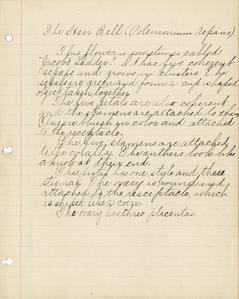 The Stair Bell (Polemonium Repans)
This flower is sometimes called
Jacobs Ladder. It has five coherent
sepals and grows in clusters. The
sepals are green and form a cup shaped
object taken together.
The five petals are also coherent
and the stamens are attached to them
bluish in color and attached
to the receptacle.
The five stamens are attached
to the corolla. The anthers look like
a knob at the end.
The pistil has one style and three
stigmas. The ovary is round and
attached to the receptacle, which
is shaped like a
The ovary has three placentas